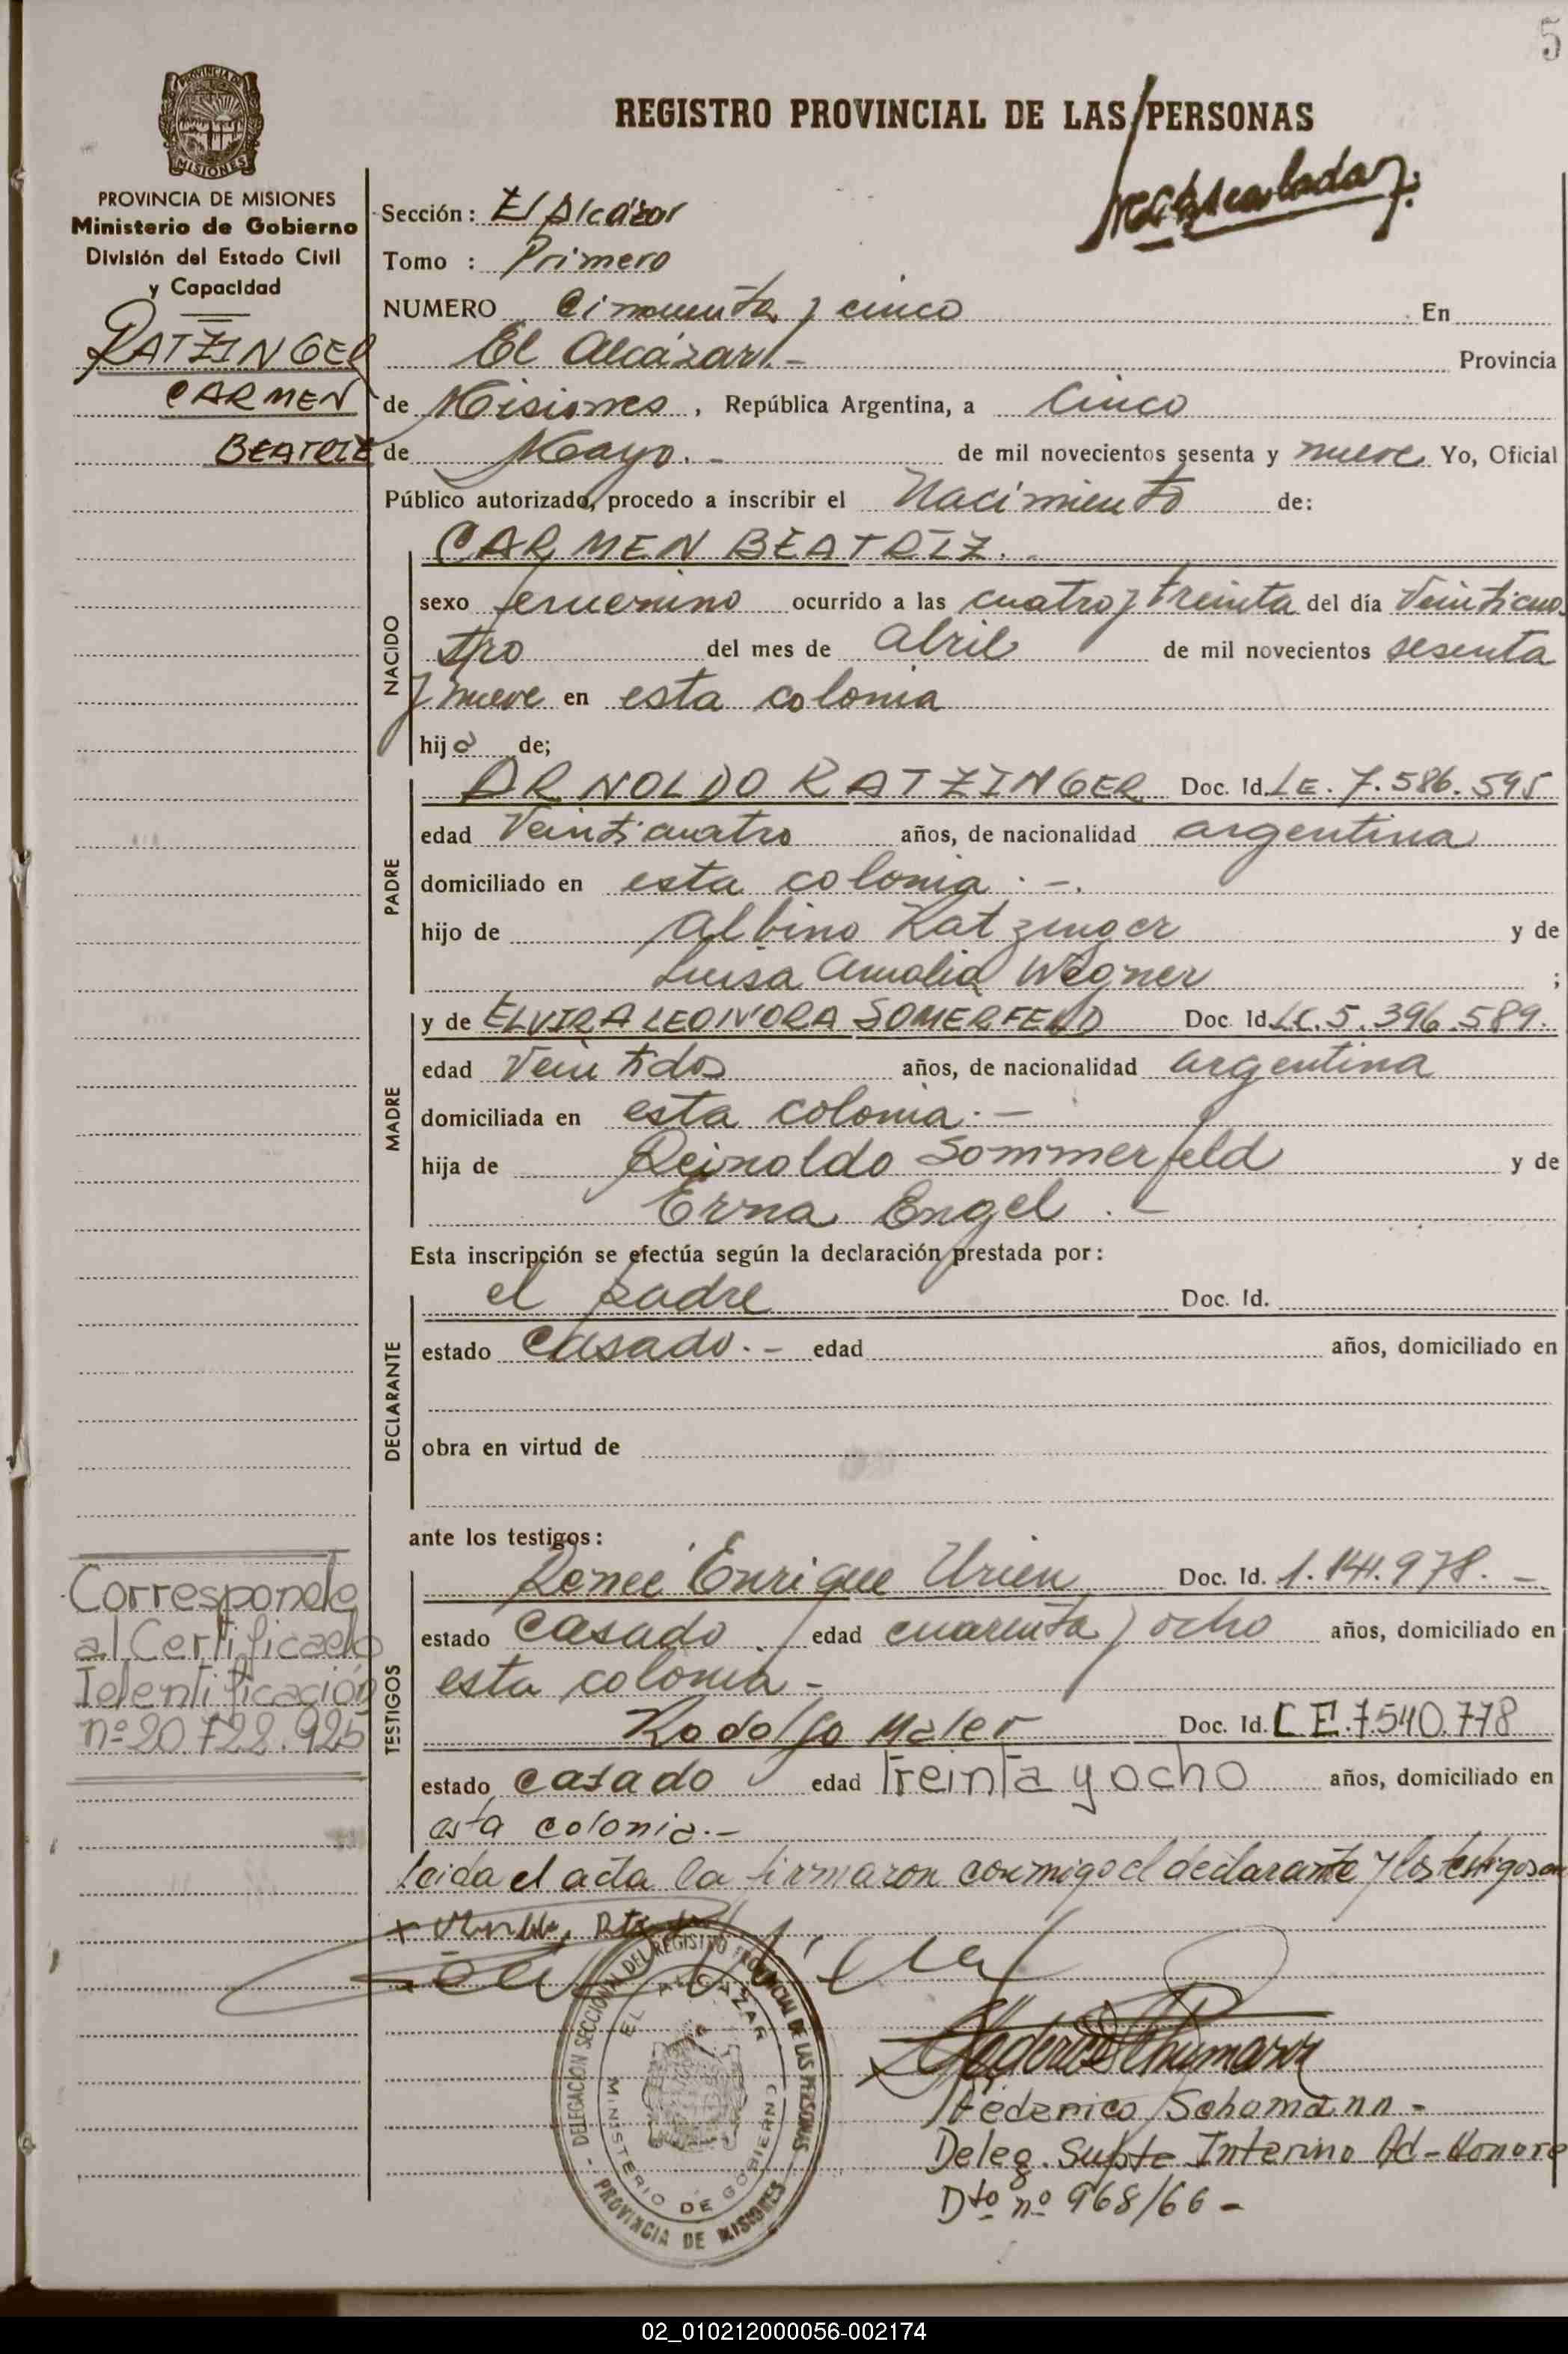 5
PROVINCIA DE
MISIONES
REGISTRO PROVINCIAL DE LAS PERSONAS
PROVINCIA DE MISIONES
Ministerio de Gobierno
División del Estado Civil
y Capacidad
RATZINGER
CARMEN
BEATRIZ
Sección: El Alcázar
Tomo : Primero
NUMERO Cincuenta y cinco En
El Alcázar.- Provincia
de Misiones, República Argentina, a Cinco
de Mayo.- de mil novecientos sesenta y nueve Yo, Oficial
Público autorizado, procedo a inscribir el Nacimiento de:
NACIDO
CARMEN BEATRIZ.
sexo femenino ocurrido a las cuatro y treinta del día Veinticua
tro del mes de abril de mil novecientos sesenta
y nueve en esta colonia
hija de;
PADRE
ARNOLDO RATZINGER Doc. Id. LE. 7.586.595
edad Veinticuatro años, de nacionalidad argentina
domiciliado en esta colonia.-.
hijo de Albino Ratzinger y de
Luisa Amalia Wegner ;
MADRE
y de ELVIRA LEONORA SOMERFELD Doc. Id. LC. 5.396.589.
edad Veintidos años, de nacionalidad argentina
domiciliada en esta colonia.-
hija de Reinoldo Sommerfeld y de
Erna Engel.-
Esta inscripción se efectúa según la declaración prestada por:
DECLARANTE
el padre Doc. Id.
estado Casado.- edad años, domiciliado en
obra en virtud de
ante los testigos:
TESTIGOS
Renee Enrique Urien Doc. Id. 1.141.978.-
estado Casado. edad cuarenta y ocho años, domiciliado en
esta colonia-
Rodolfo Maler Doc. Id. LE.7.540.778
estado casado edad Treinta y ocho años, domiciliado en
esta colonia.-
leida el acta la firmaron conmigo el declarante y los testigos
Corresponde
al Certificado
Identificación
nº 20.722.925
DELEGACION SECCIONAL DEL REGISTRO PROVINCIAL DE LAS PERSONAS
EL ALCAZAR
MINISTERIO DE GOBIERNO
PROVINCIA DE MISIONES
Federico Schumann
Federico Schumann-
Deleg. Supte Interino Ad-Honore
Dto nº 968/66-
02_010212000056-002174